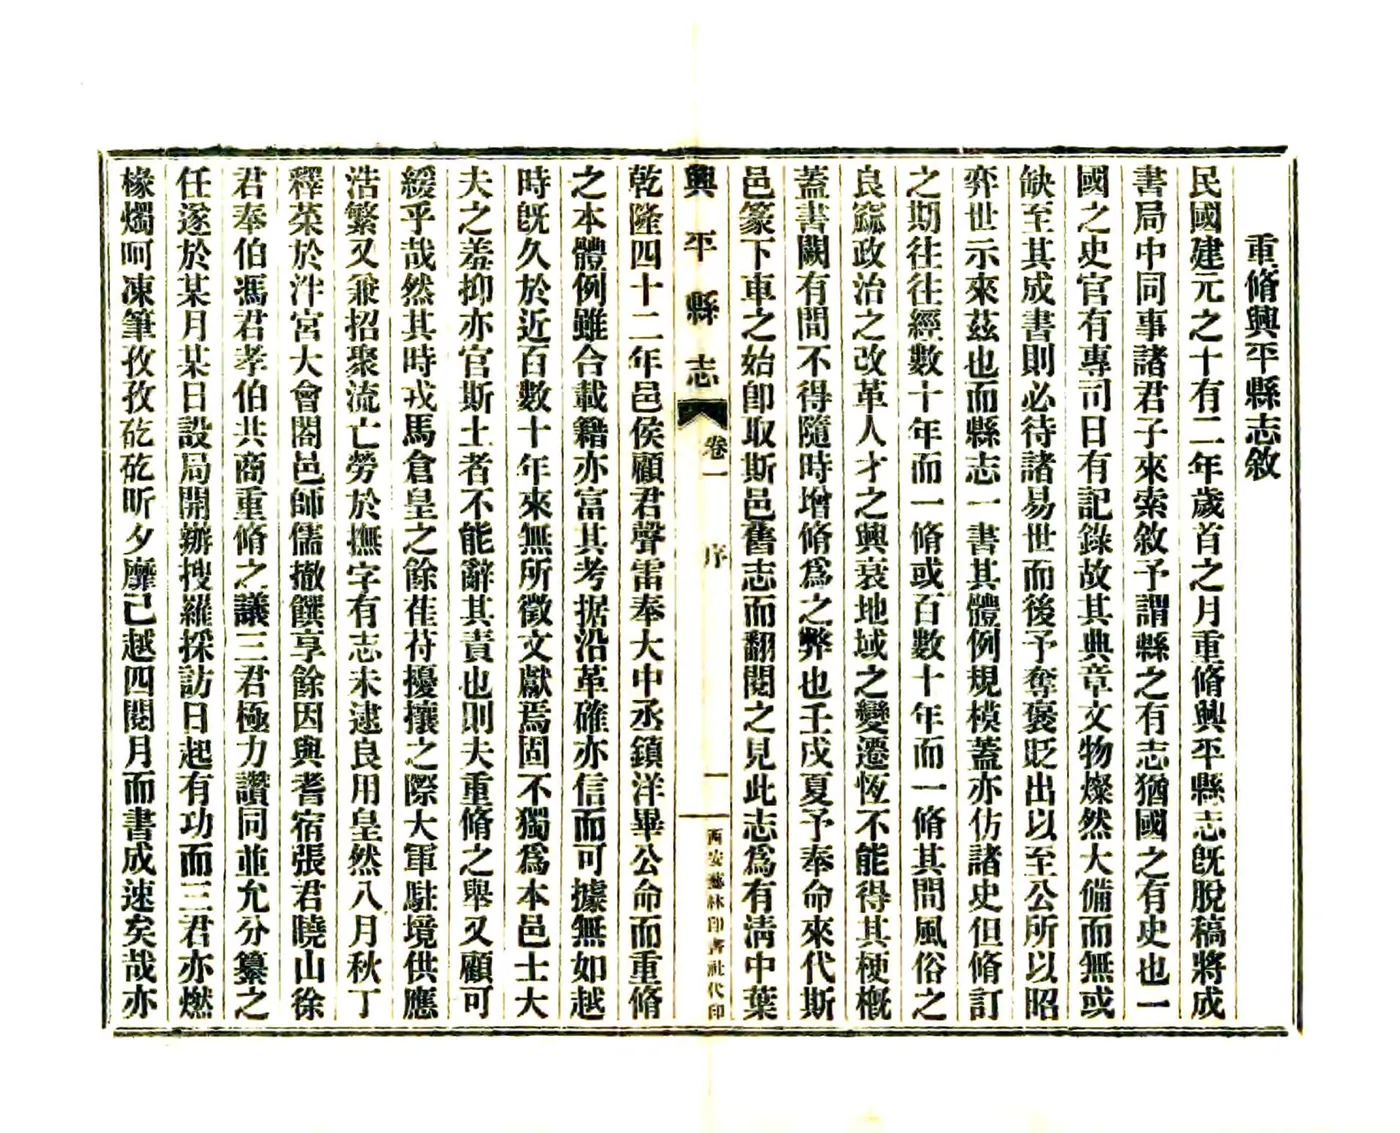 重脩興平縣志敘
民國建元之十有二年歲首之月重脩興平縣志旣脫稿將成
書局中同事諸君子來索敘予謂縣之有志猶國之有史也一
國之史官有專司日有記錄故其典章文物燦然大備而無或
缺至其成書則必待諸易世而後予奪褒貶出以至公所以昭
弈世示來茲也而縣志一書其體例規模蓋亦仿諸史但脩訂
之期往往經數十年而一脩或百數十年而一脩其間風俗之
良窳政治之改革人才之興衰地域之變遷恆不能得其梗槪
蓋書闕有間不得隨時增脩爲之弊也壬戌夏予奉命來代斯
邑篆下車之始卽取斯邑舊志而翻閱之見此志爲有淸中葉
興平縣志
卷一
序
一
西安藝林印書社代印
乾隆四十二年邑侯顧君聲雷奉大中丞鎮洋畢公命而重脩
之本體例雖合載籍亦富其考据沿革確亦信而可據無如越
時旣久於近百數十年來無所徵文獻焉固不獨爲本邑士大
夫之羞抑亦官斯土者不能辭其責也則夫重脩之舉又顧可
緩乎哉然其時戎馬倉皇之餘萑苻擾攘之際大軍駐境供應
浩繁又兼招聚流亡勞於撫字有志未逮良用皇然八月秋丁
釋菜於泮宮大會閤邑師儒撤饌享餘因與耆宿張君曉山徐
君奉伯馮君孝伯共商重脩之議三君極力讚同並允分纂之
任遂於某月某日設局開辦搜羅採訪日起有功而三君亦燃
椽燭呵凍筆孜孜矻矻昕夕靡已越四閱月而書成速矣哉亦